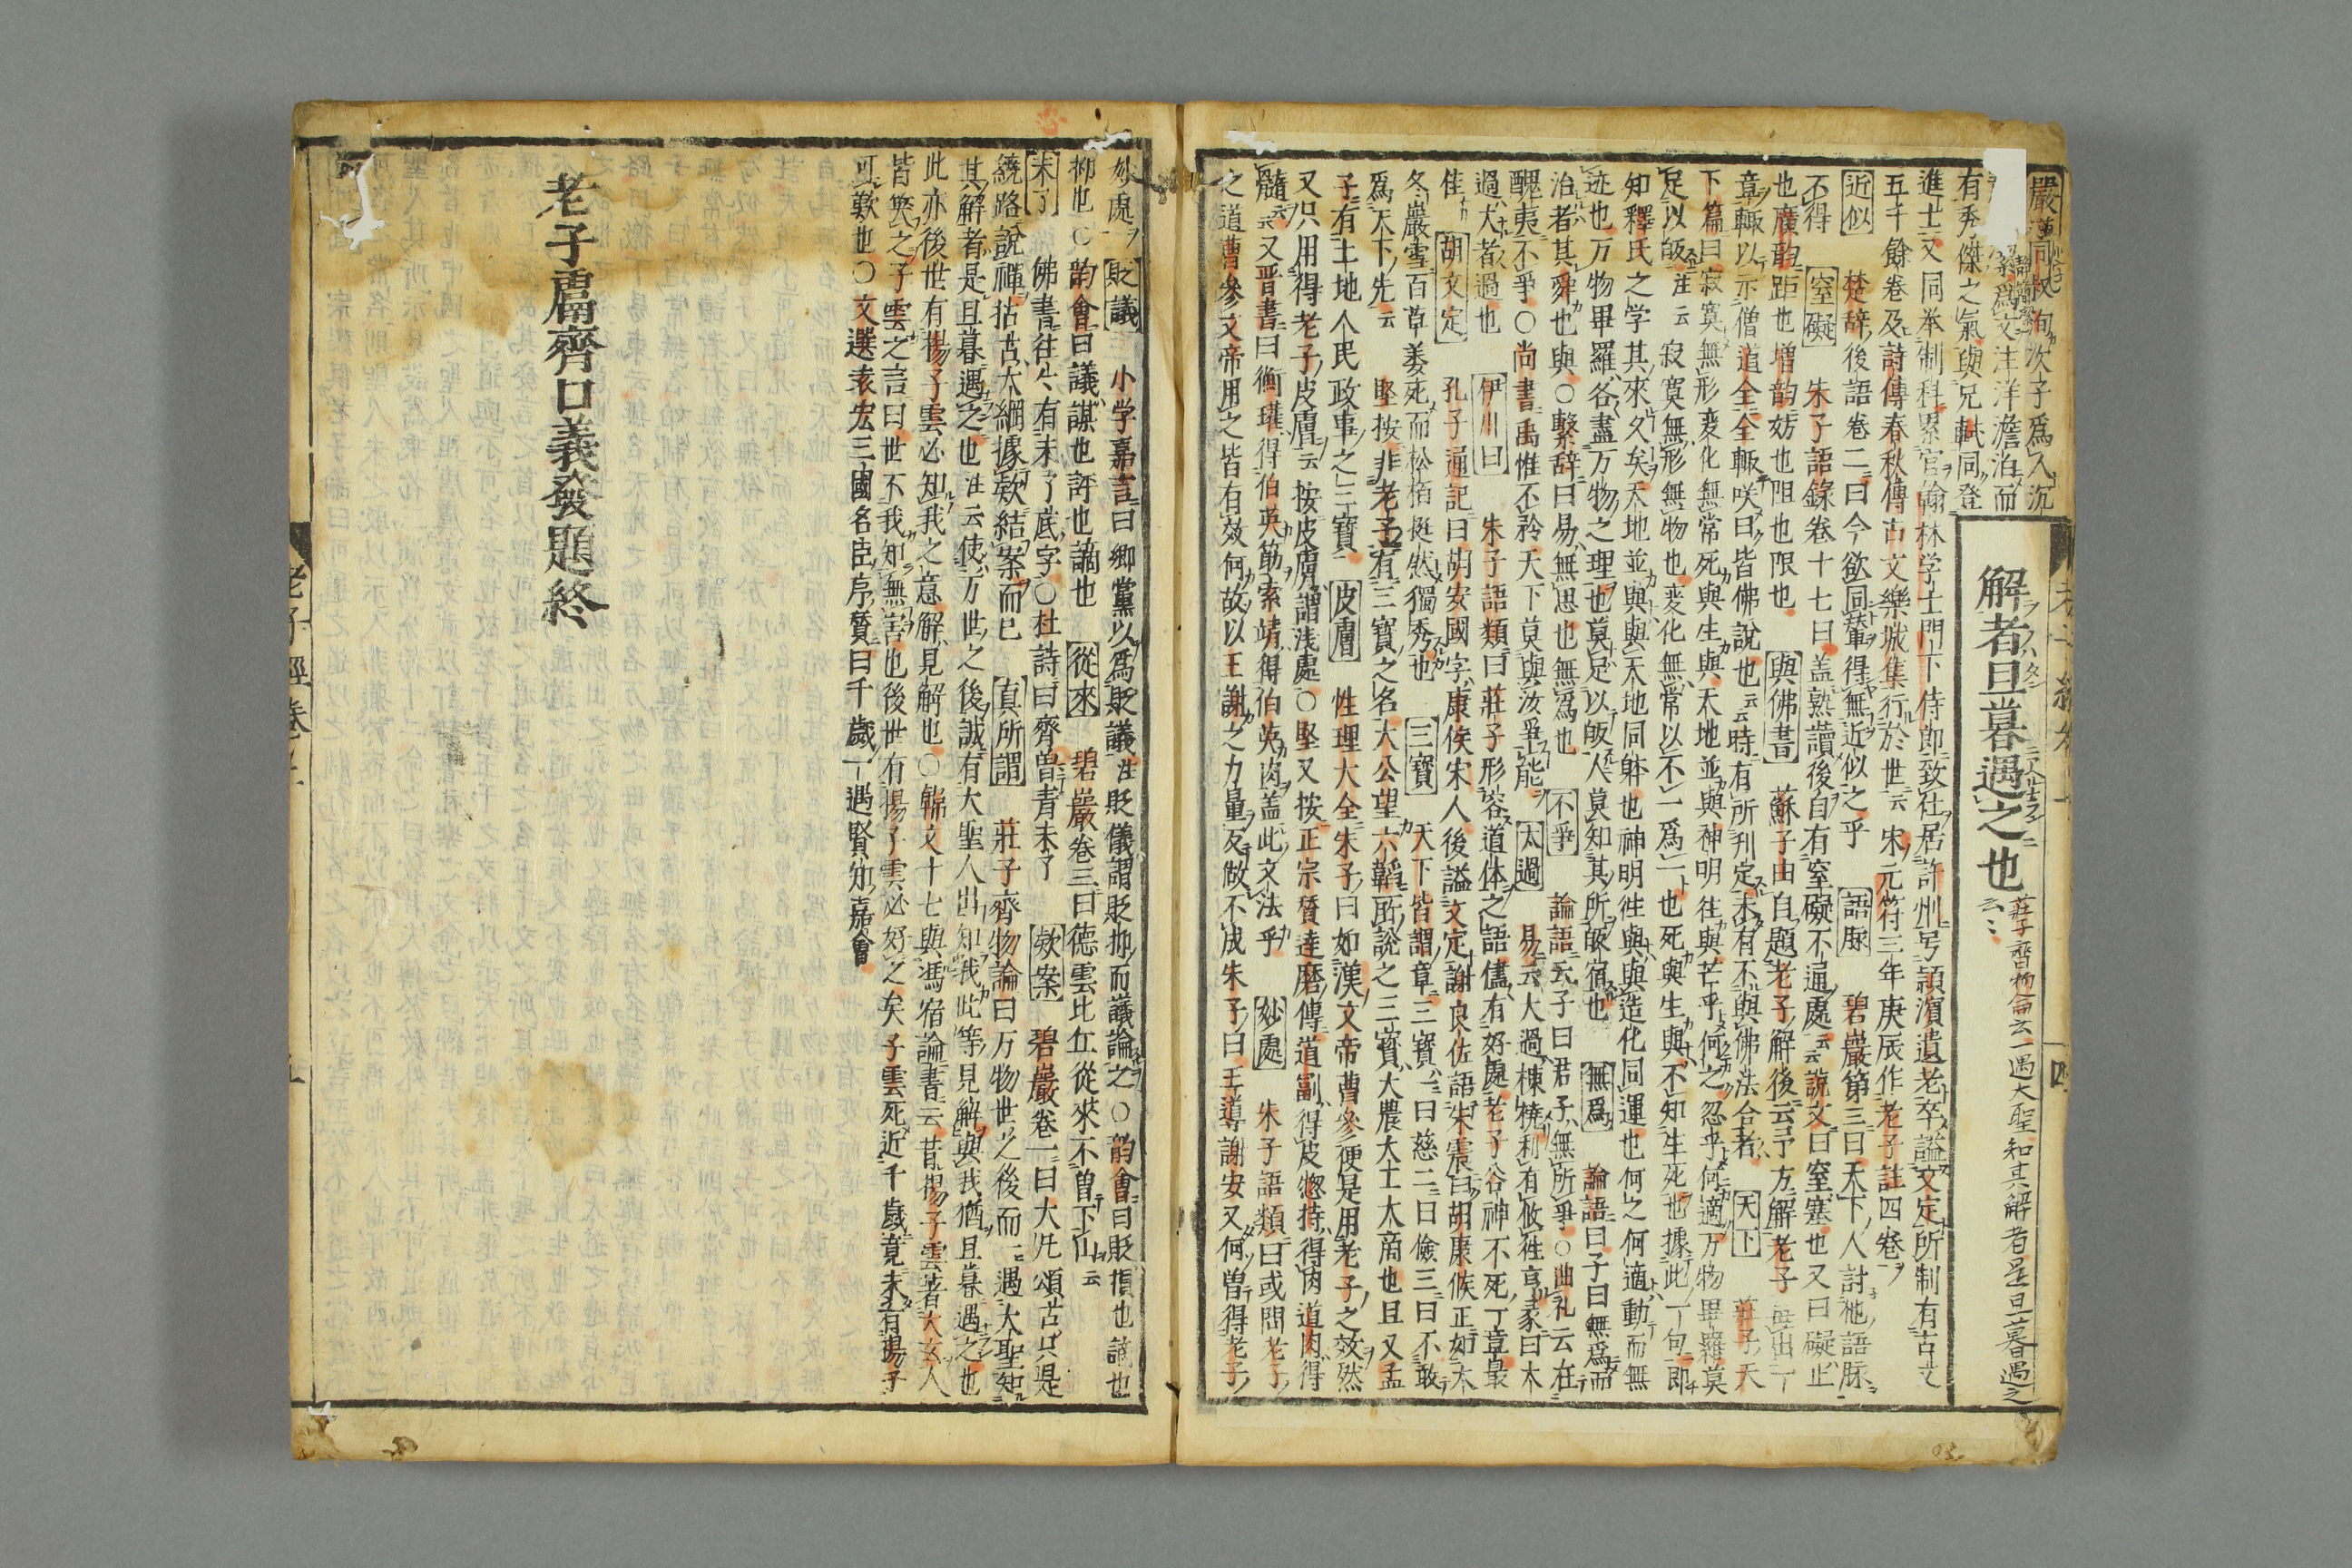 解者旦暮遇之也云云莊子齊物侖云一遇大聖知其解者是旦暮遇之
有秀傑之氣與兄軾同登
進士又同举制科累官翰林学士門下侍郎致仕居許州号頴濱遺老卒謚文定所制有古史
五千餘卷及詩傳春秋傳古文欒城集行於世云宋元符三年庚辰作老子註四卷
近似 楚辞後語卷二曰今欲同輩得無近似之乎 語脉 碧巖第三曰天下人討他語脉
不得 窒礙 朱子語錄卷十七曰盖熟讀後自有窒礙不通處云云說文曰窒塞也又曰礙止
也廣韵距也増韵妨也阻也限也 與佛書 蘇子由自題老子解後云予方解老子每出一
章輙以示僧道全全輙咲曰皆佛說也云云時有所刋定未有不與佛法合者 天下 莊子天
下篇曰寂寞無形変化無常死與生與天地並與神明徃與芒乎何之忽乎何適万物畢羅莫
足以皈注云寂寞無形無物也変化無常以不一爲一也死與生與不知生死也據此一句即
知釋氏之学其來久矣天地並與與天地同躰也神明徃與與造化同運也何之何適動而無
迹也万物畢羅各盡万物之理也莫足以皈人莫知其所皈宿也 無爲 論語曰子曰無爲而
治者其舜也與○繫辞曰易無思也無爲也 不爭 論語云子曰君子無所爭○曲礼云在
醜夷不爭○尚書禹惟不矜天下莫與汝爭能 太過 易云大過棟橈利有攸徃亨彖曰大
過大者過也 伊川曰 朱子語類曰莊子形容道体之語儘有好處老子谷神不死一章最
佳 胡文定 孔子通記曰胡安國字康侯宋人後謚文定謝良佐語朱震曰胡康候正如大
冬嚴雪百草萎死而松栢挺然獨秀也 三寶 天下皆謂章三寶一曰慈二曰儉三曰不敢
爲天下先云 堅按非老子有三寶之名大公望六韜所說之三寶大農大工大商也且又孟
子有土地人民政事之三寶 皮膚 性理大全朱子曰如漢文帝曹參便是用老子之效然
又只用得老子皮膚云按皮膚謂浅處○堅又按正宗賛達磨傳道副得皮惣持得肉道肉得
髓云又晋書曰衛瓘得伯英筋索靖得伯英肉盖此文法乎 妙處 朱子語類曰或問老子
之道曹參文帝用之皆有效何故以王謝之力量反做不成朱子曰王導謝安又何曽得老子
妙處 貶議 小学嘉言曰郷黨以爲貶議注貶儀謂貶抑而議論之○韵會曰貶損也謫也
抑也○韵會曰議謀也評也謫也 從來 碧巖卷三曰德雲比丘從來不曽下山云
未了 佛書徃々有未了底字○杜詩曰齊魯青未了 欵案 碧巖卷一曰大凢頌古只是
繞路說禪拈古大綱據欵結案而已 真所謂 莊子齊物論曰万物世之後而一遇大聖知
其解者是且暮遇之也注云使万世之後誠有大聖人出知我此等見解與我猶且暮遇之也
此亦後世有揚子雲必知我之意解見解也○韓文十七與馮宿論書云昔揚子雲著大玄人
皆笑之子雲之言曰世不我知無害也後世有揚子雲必好之矣子雲死近千歲竟未有揚子
可歎也○文選袁宏三國名臣序賛曰千歲一遇賢知嘉會
老子鬳齊口義發題終